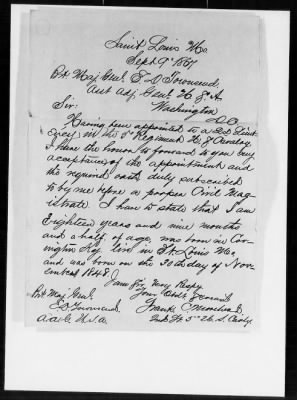 Saint Louis Mo
Sept. 9th 1867
Bt Maj. Genl. E D Townsend
Asst Adj. Genl. U. S. A.
Washington
D.C.
Sir:
Having been appointed to a 2d Lieut-
cy in the 5th Regiment U. S. Cavalry
I have the honor to forward to you my
acceptance of the appointment and
the required oath duly subscribed
to by me before a proper Civil Mag-
istrate. I have to state that I am
Eighteen years and nine months
and a half of age, was born in Cov-
ington Ky, live in St. Louis Mo,
and was born on the 30th day of Nov-
ember 1848.
I am Sir, Very Respy
Your Obdt Servant
Frank C
2nd Lt. 5th U. S. Cavly.
Bt Maj. Genl.
E. D. Townsend
A.A.G. U.S.A.